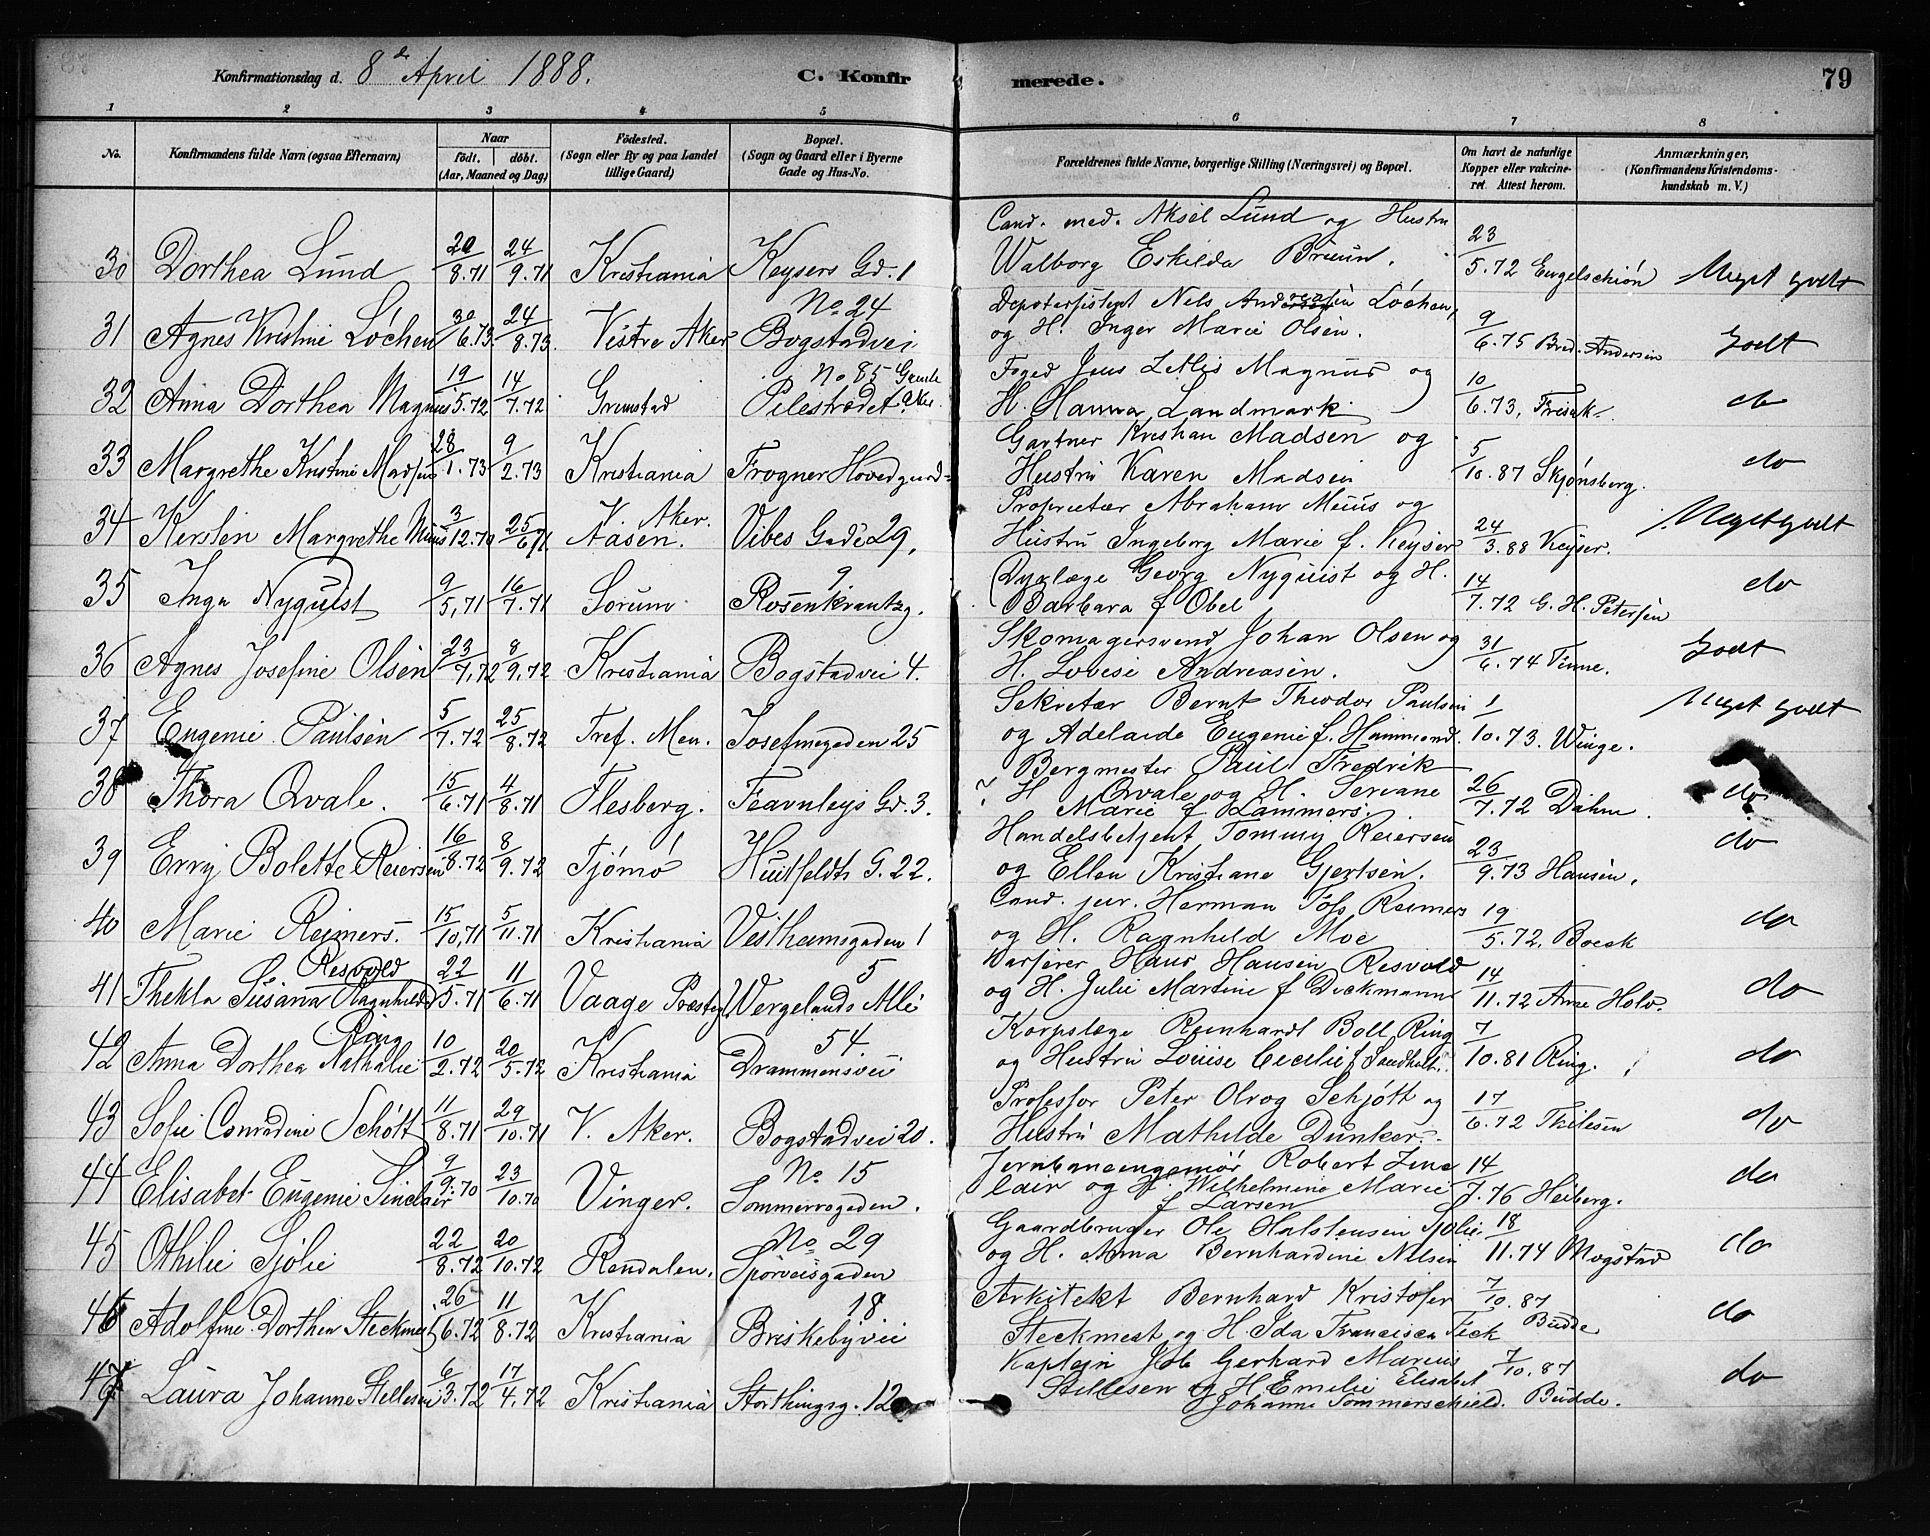 Konfirmationsdag d. 8de April 1888.
C. Konfirmerede.
79
1 2 3 4 5 6 7 8
No.
Konfirmandens fulde Navn (ogsaa Efternavn)
Naar
födt. döbt.
(Aar, Maaned og Dag)
Födested.
(Sogn eller By og paa Landet tillige Gaard)
Bopæl.
(Sogn og Gaard eller i Byerne Gade og Hus-No.
Forældrenes fulde Navne, borgerlige Stilling (Næringsvei) og Bopæl.
Om havt de naturlige Kopper eller vakcineret. Attest herom.
Anmærkninger.
(Konfirmandens Kristendomskundskab m. V.)
30 Dorthea Lund 20/8.71 24/9.71 Kristiania Keysers Gd. 1 Cand. med. Aksel Lund og Hustru Walborg Eskilda Bruun. 23/5.72 Engelschiön Meget godt
31 Agnes Kristine Lóchen 30/6.73 24/8.73. Vestre Aker No 24 Bogstadvei Nels Lóchen, og H. Inger Marie Olsen. 9/6.75 Bred. Andersen Godt
32 Anna Dorthea Magnus 19/5.72 14/7.72 Grimstad No 85 Gamle Aker Pilestrædet Foged Jens Magnus og H. Hanna Landmark 10/6.73, Frisak. do
33 Margrethe Kristine Madsen 28/1.73 9/2.73 Kristiania Frogner Hovedgaard Gartner Kristian Madsen og Hustru Karen Madsen 5/10.87 Skjónsberg. do
34 Kersten Margrethe Muus 3/12.70 25/6.71 V. Aker. Aasen. Vibes Gade 29, Proprietær Abraham Muus og Hustru Ingeborg Marie f. Keyser 24/3.88 Keyser. Meget godt
35 Inga Nyquist 9/5.71 16/7.71 Sorum 9 Rosenkrantzg. Dyrlæge Georg Nyquist og H. Barbara f Obel 14/7.72 G. H. Petersen do
36 Agnes Josefine Olsen 23/7.72 8/9.72 Kristiania Bogstadvei 4. Skomagersvend Johan Olsen og H. Lovise Andreasen. 31/6.74 Tinne. Godt
37 Eugenie Paulsen 5/7.72 25/8.72 Tref. Men. Josefinegaden 25 Sekretær Bernt Theodor Paulsen og Adelaide Eugenie f. Hammond. 1/10.73. Winge. Meget godt
38 Thora Qvale. 15/6.71 4/8.71 Flesberg. Fearnleys Gd. 3. Bergmester Paul Fredrik H Qvale og H. Servane Marie f. Lammers. 26/7.72 Dahm. do
39 Erny Bolette Reiersen 16/8.72 8/9.72 Tjómó Huitfeldts G. 22. Handelsbetjent Tommy Reiersen og Ellen Kristiane Gjertsen. 23/9.73 Hansen. do
40 Marie Reimers. 15/10.71 5/11.71 Kristiania Vestheimsgaden 1 Cand. jur. Herman Foss Reimers og H. Ragnhild Moe 19/5.72. Boeck do
41 Thekla Susana Ragnhild Resvold 22/5.71 11/6.71 Vaage Præstegj. 5 Wergelands Allé Hans Hansen Resvold og H. Julie Martine f Deckmann 14/11.72 Arne Holv. do
42 Anna Dorthea Nathalie Ring 10/2.72 20/5.72 Kristiania 54 Drammensvei Korpslæge Reinhardt Boll Ring og Hustru Louise Cecilie f Sandholt. 7/10.81 Ring. do
43 Sofie Conradine Schótt 11/8.71 29/10.71 V. Aker. Bogstadvei 20. Professor Peter Olrog Schjótt og Hustru Mathilde Dunker. 17/6.72 Thilesen do
44 Elisabet Eugenie Sinclair 9/9.70 23/10.70 Vinger. No. 15 Sommerrogaden. Jernbaneingeniór Robert Sinclair og H. Wilhelmine Marie f Larsen 14/7.76 Heiberg. do
45 Othilie Sjólie 22/8.72 20/10.72 Rendalen. No 29 Sporveisgaden Gaardbruger Ole Halstensen Sjólie og H. Anna Bernhardine Nilsen 18/11.74 Mogstad do
46 Adolfine Dorthea Steckmest 26/6.72 11/8.72 Kristiania 18. Briskebyvei Arkitekt Bernhard Kristofer Steckmest og H. Ida Francisca Feck 7/10.87 Budde do
47 Laura Johanne Stillesen 6/3.72 17/4.72 Kristiania Storthingsg. 12 Kaptejn Job Gerhard Marius Stillesen og H. Emilie Elisabet Johanne Sommerschield. 7/10.87 Budde. do